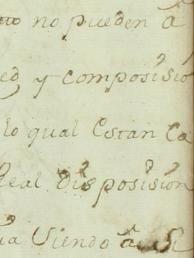 no pueden a
ed y composisio
lo qual Estan Ca
Real disposision
ia Siendo a